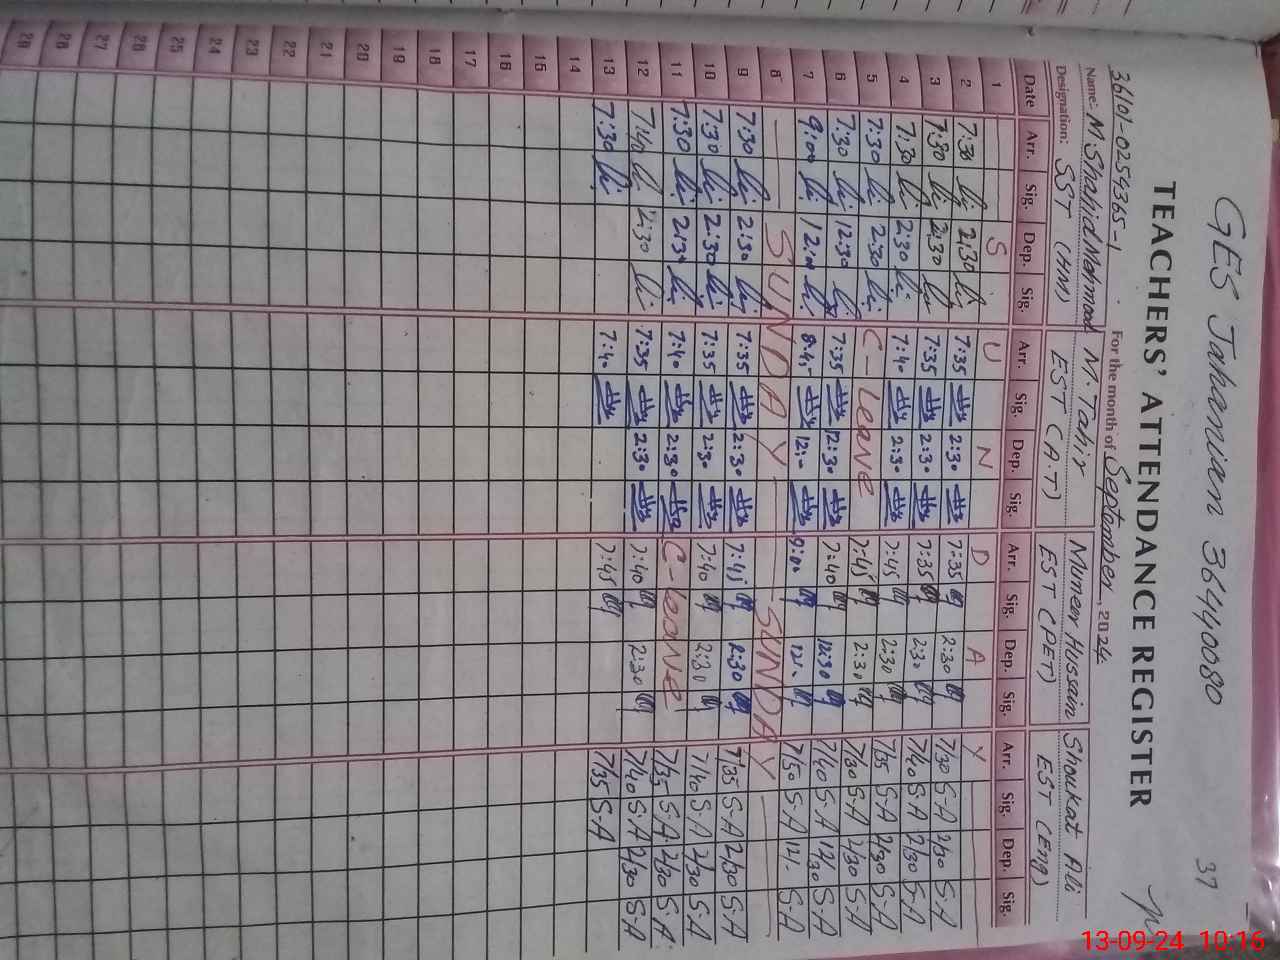 GES Jahanian 36440080
37
TEACHERS' ATTENDANCE REGISTER
36101-0254365-1 For the month of September, 2024
Name: M. Shahid Mehmood M. Tahir Muneer Hussain Shoukat Ali
Designation: SST (HM) EST (A.T) EST (PET) EST (Eng)
Date Arr. Sig. Dep. Sig. Arr. Sig. Dep. Sig. Arr. Sig. Dep. Sig. Arr. Sig. Dep. Sig.
1 S U N D A Y
2 7:30 2:30 7:35 2:30 7:35 2:30 7/30 S-A 2/30 S-A
3 7:30 2:30 7:35 2:30 7:35 2:30 7/40 S-A 2/30 S-A
4 7:30 2:30 7:40 2:30 7:45 2:30 7/35 S-A 2/30 S-A
5 7:30 2:30 C-leave 7:45 2:30 7/30 S-A 2/30 S-A
6 7:30 12:30 7:35 12:30 7:40 12:30 7/40 S-A 12/30 S-A
7 9:00 12:00 8:45 12:- 9:00 12:- 7/50 S-A 12/- S-A
8 SUNDAY SUNDAY
9 7:30 2:30 7:35 2:30 7:45 2:30 7/35 S-A 2/30 S-A
10 7:30 2:30 7:35 2:30 7:40 2:30 7/40 S-A 2/30 S-A
11 7:30 2:30 7:40 2:30 C-leave 7/35 S-A 2/30 S-A
12 7:40 2:30 7:35 2:30 7:40 2:30 7/40 S-A 2/30 S-A
13 7:30 7:40 7:45 7/35 S-A
14
15
16
17
18
19
20
21
22
23
24
25
26
27
28
29
13-09-24 10:16